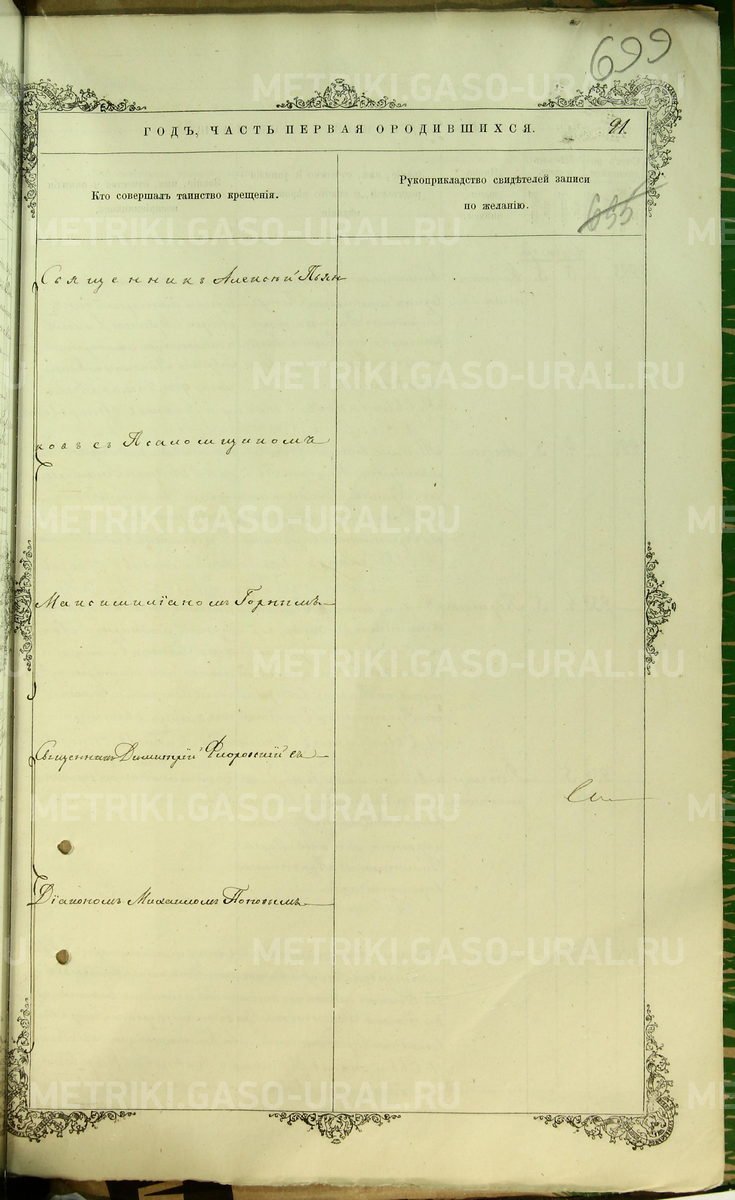 699
ГОДЪ, ЧАСТЬ ПЕРВАЯ О РОДИВШИХСЯ.
91.
Кто совершалъ таинство крещенія.
Рукоприкладство свидѣтелей записи
по желанію.
Священникъ Алексій Пьян
ковъ съ Псаломщикомъ
Максимиліаномъ Горнымъ
Священникъ Димитрій Флоровскій съ
Діакономъ Михаиломъ Поповымъ
METRIKI.GASO-URAL.RU